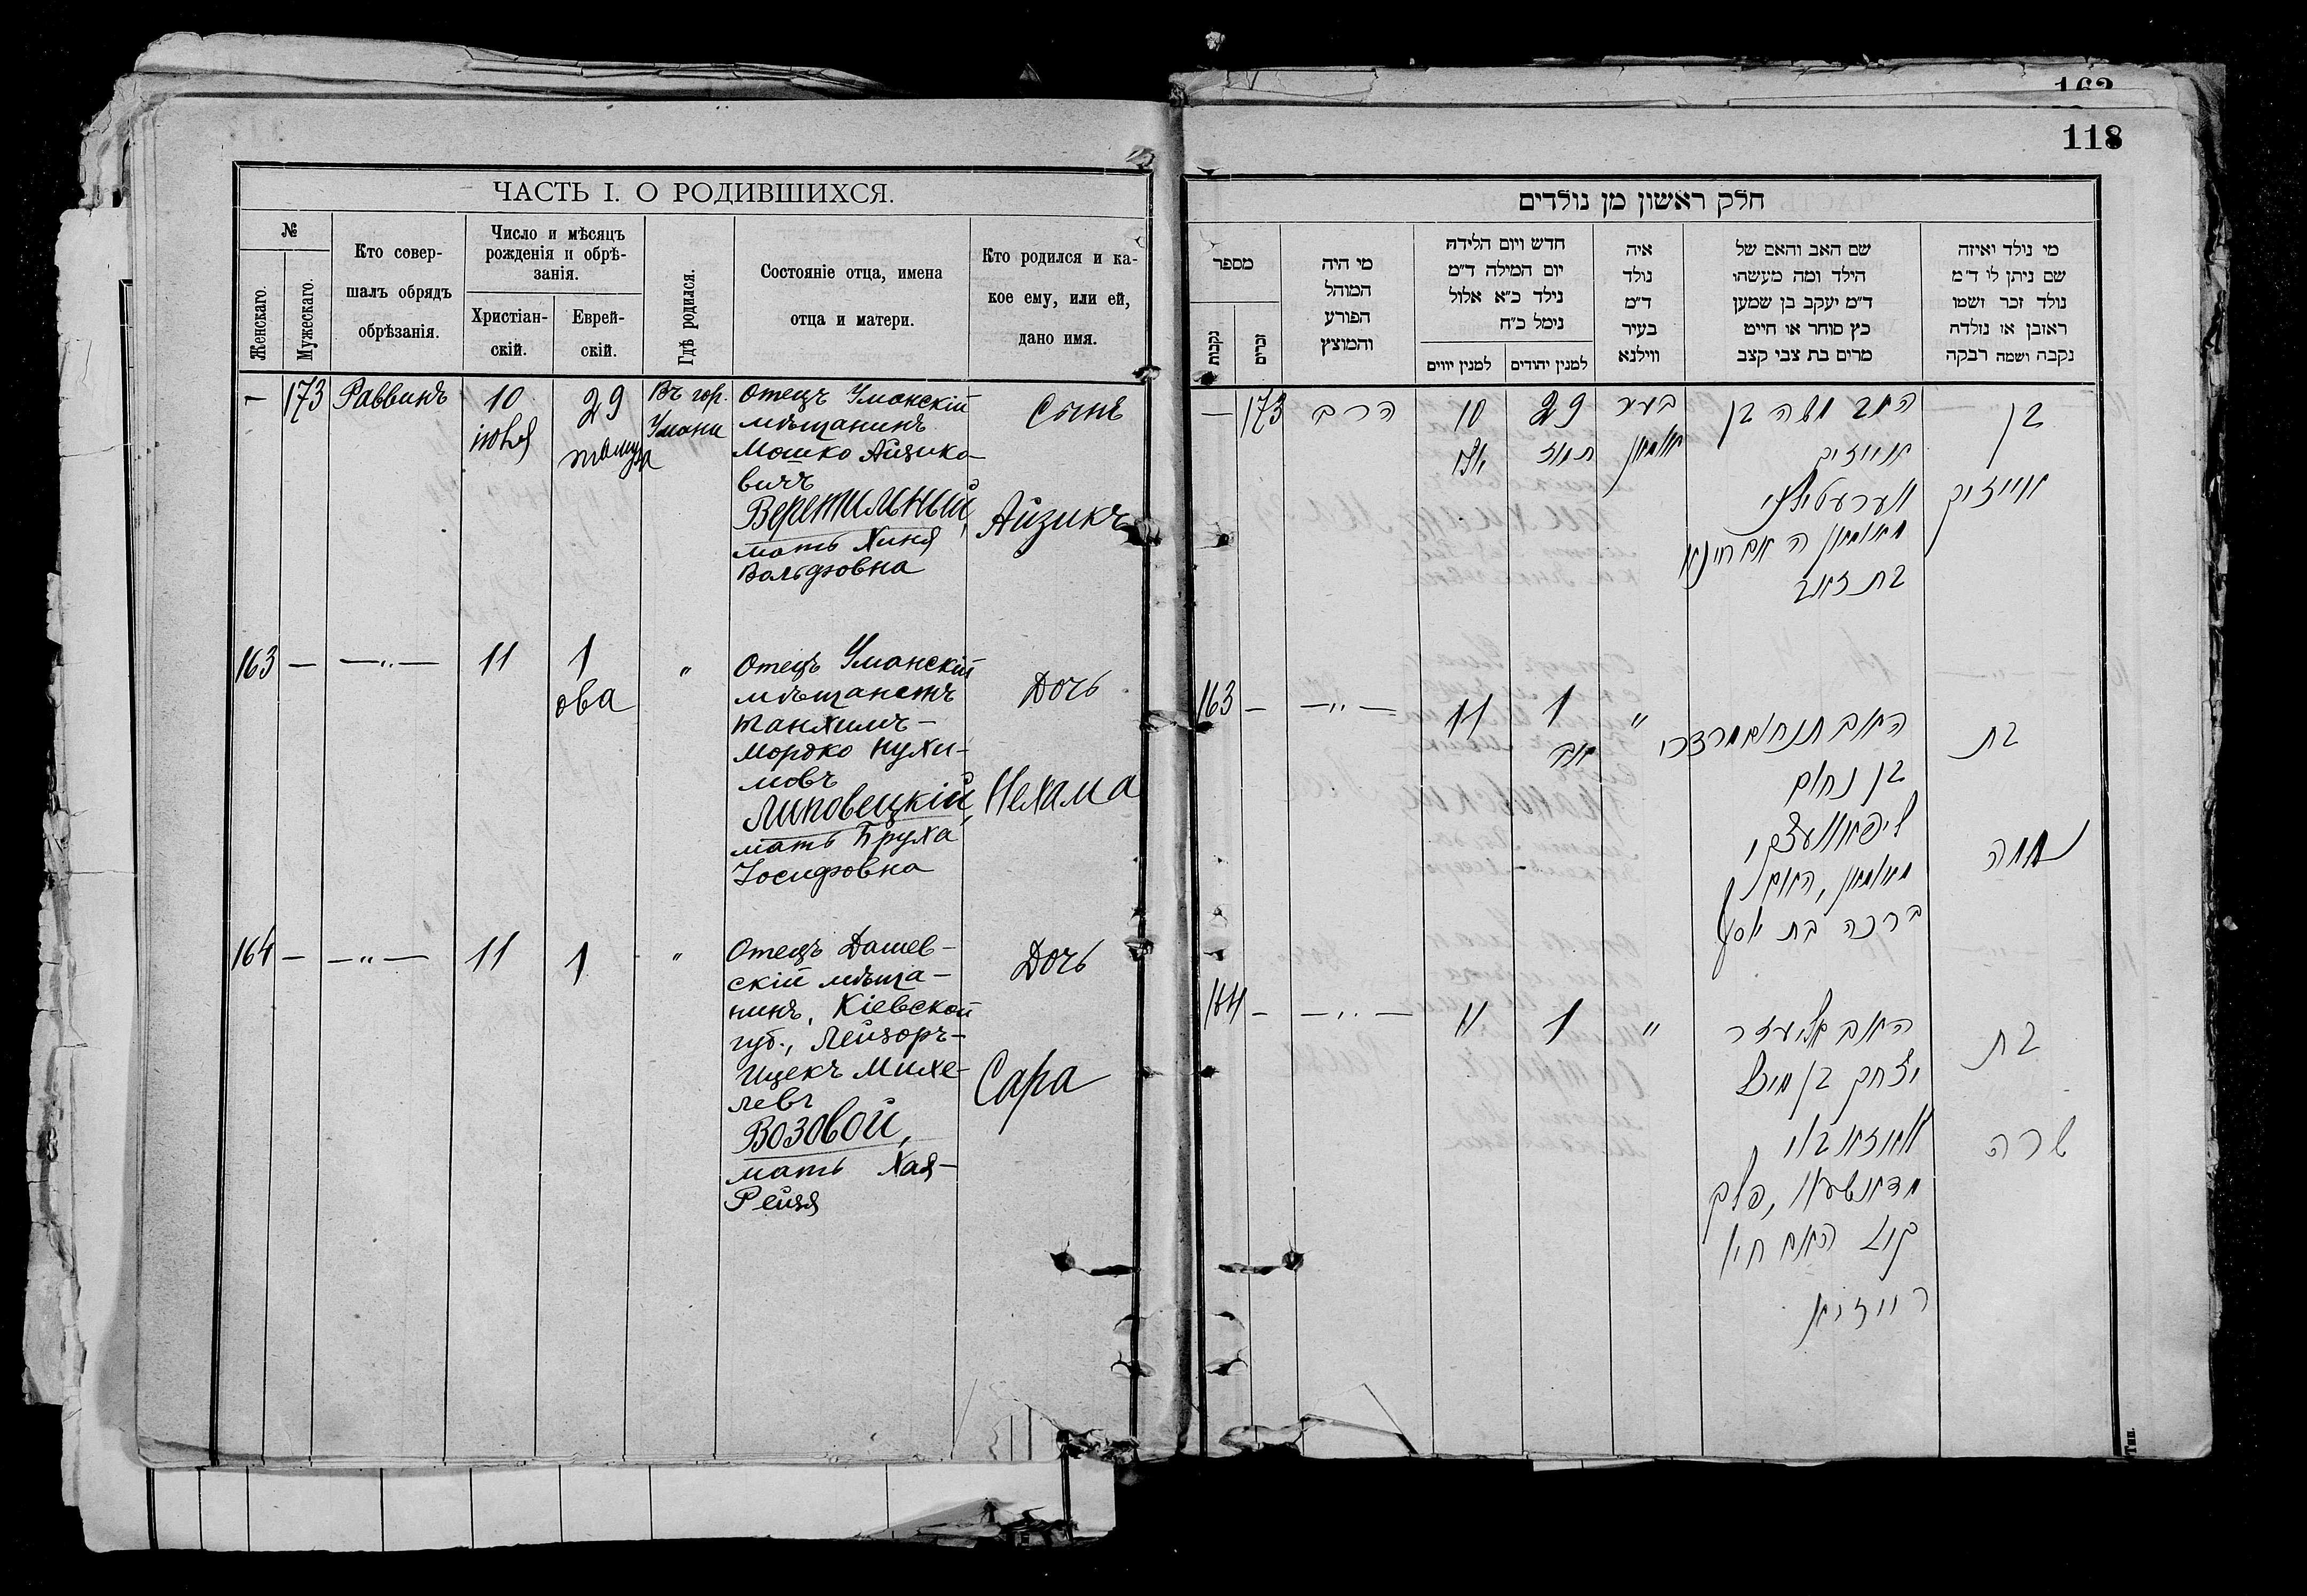 162
118
ЧАСТЬ I. О РОДИВШИХСЯ.
№
Женскаго.
Мужескаго.
Кто совер-
шалъ обрядъ
обрѣзанія.
Число и мѣсяцъ
рожденія и обрѣ-
занія.
Христіан-
скій.
Еврей-
скій.
Гдѣ родился.
Состояніе отца, имена
отца и матери.
Кто родился и ка-
кое ему, или ей,
дано имя.
—
173
Раввинъ
10
іюля
29
тамуза
Въ гор.
Умани
Отецъ Уманскій
мѣщанинъ
Мошко Айзико-
вичъ
Веретильный,
мать Хиня
Вольфовна
Сынъ
Айзикъ
163
—
—„—
11
1
ова
„
Отецъ Уманскій
мѣщанинъ
Танхимъ-
Мордко Нухи-
мовъ
Липовецкій,
мать Бруха
Іосифовна
Дочь
Нехама
164
—
—„—
11
1
„
Отецъ Дашев-
скій мѣща-
нинъ, Кіевской
губ., Лейзоръ-
Ицекъ Михе-
левъ
Возовой,
мать Хая-
Рейзя
Дочь
Сара
חלק ראשון מן נולדים
מספר
נקבות
זכרים
מי היה
המוהל
הפורע
והמוצץ
חדש ויום הלידה
יום המילה ד״מ
נילד כ״א אלול
נימל כ״ח
למנין יהודים
למנין יווים
איה
נולד
ד״מ
בעיר
ווילנא
שם האב והאם של
הילד ומה מעשהו
ד״מ יעקב בן שמען
כץ סוחר או חייט
מרים בת צבי קצב
מי נולד ואיזה
שם ניתן לו ד״מ
נולד זכר ושמו
ראובן או נולדה
נקבה ושמה רבקה
—
173
הרב
10
יולי
29
תמוז
בעיר
אומאן
האב משה בן
אייזיק
ווערעטילני
מאומאן האם חינא
בת זאב
בן
אייזיק
163
—
—„—
11
1
אב
„
האב תנחום מרדכי
בן נחום
ליפאוועצקי
מאומאן, האם
ברכה בת יוסף
בת
נחמה
164
—
—„—
11
1
„
האב אליעזר
יצחק בן מיכל
וואזאבוי
מדאשעוו, פלך
קיוב האם חיא
רייזיא
בת
שרה
Тип.